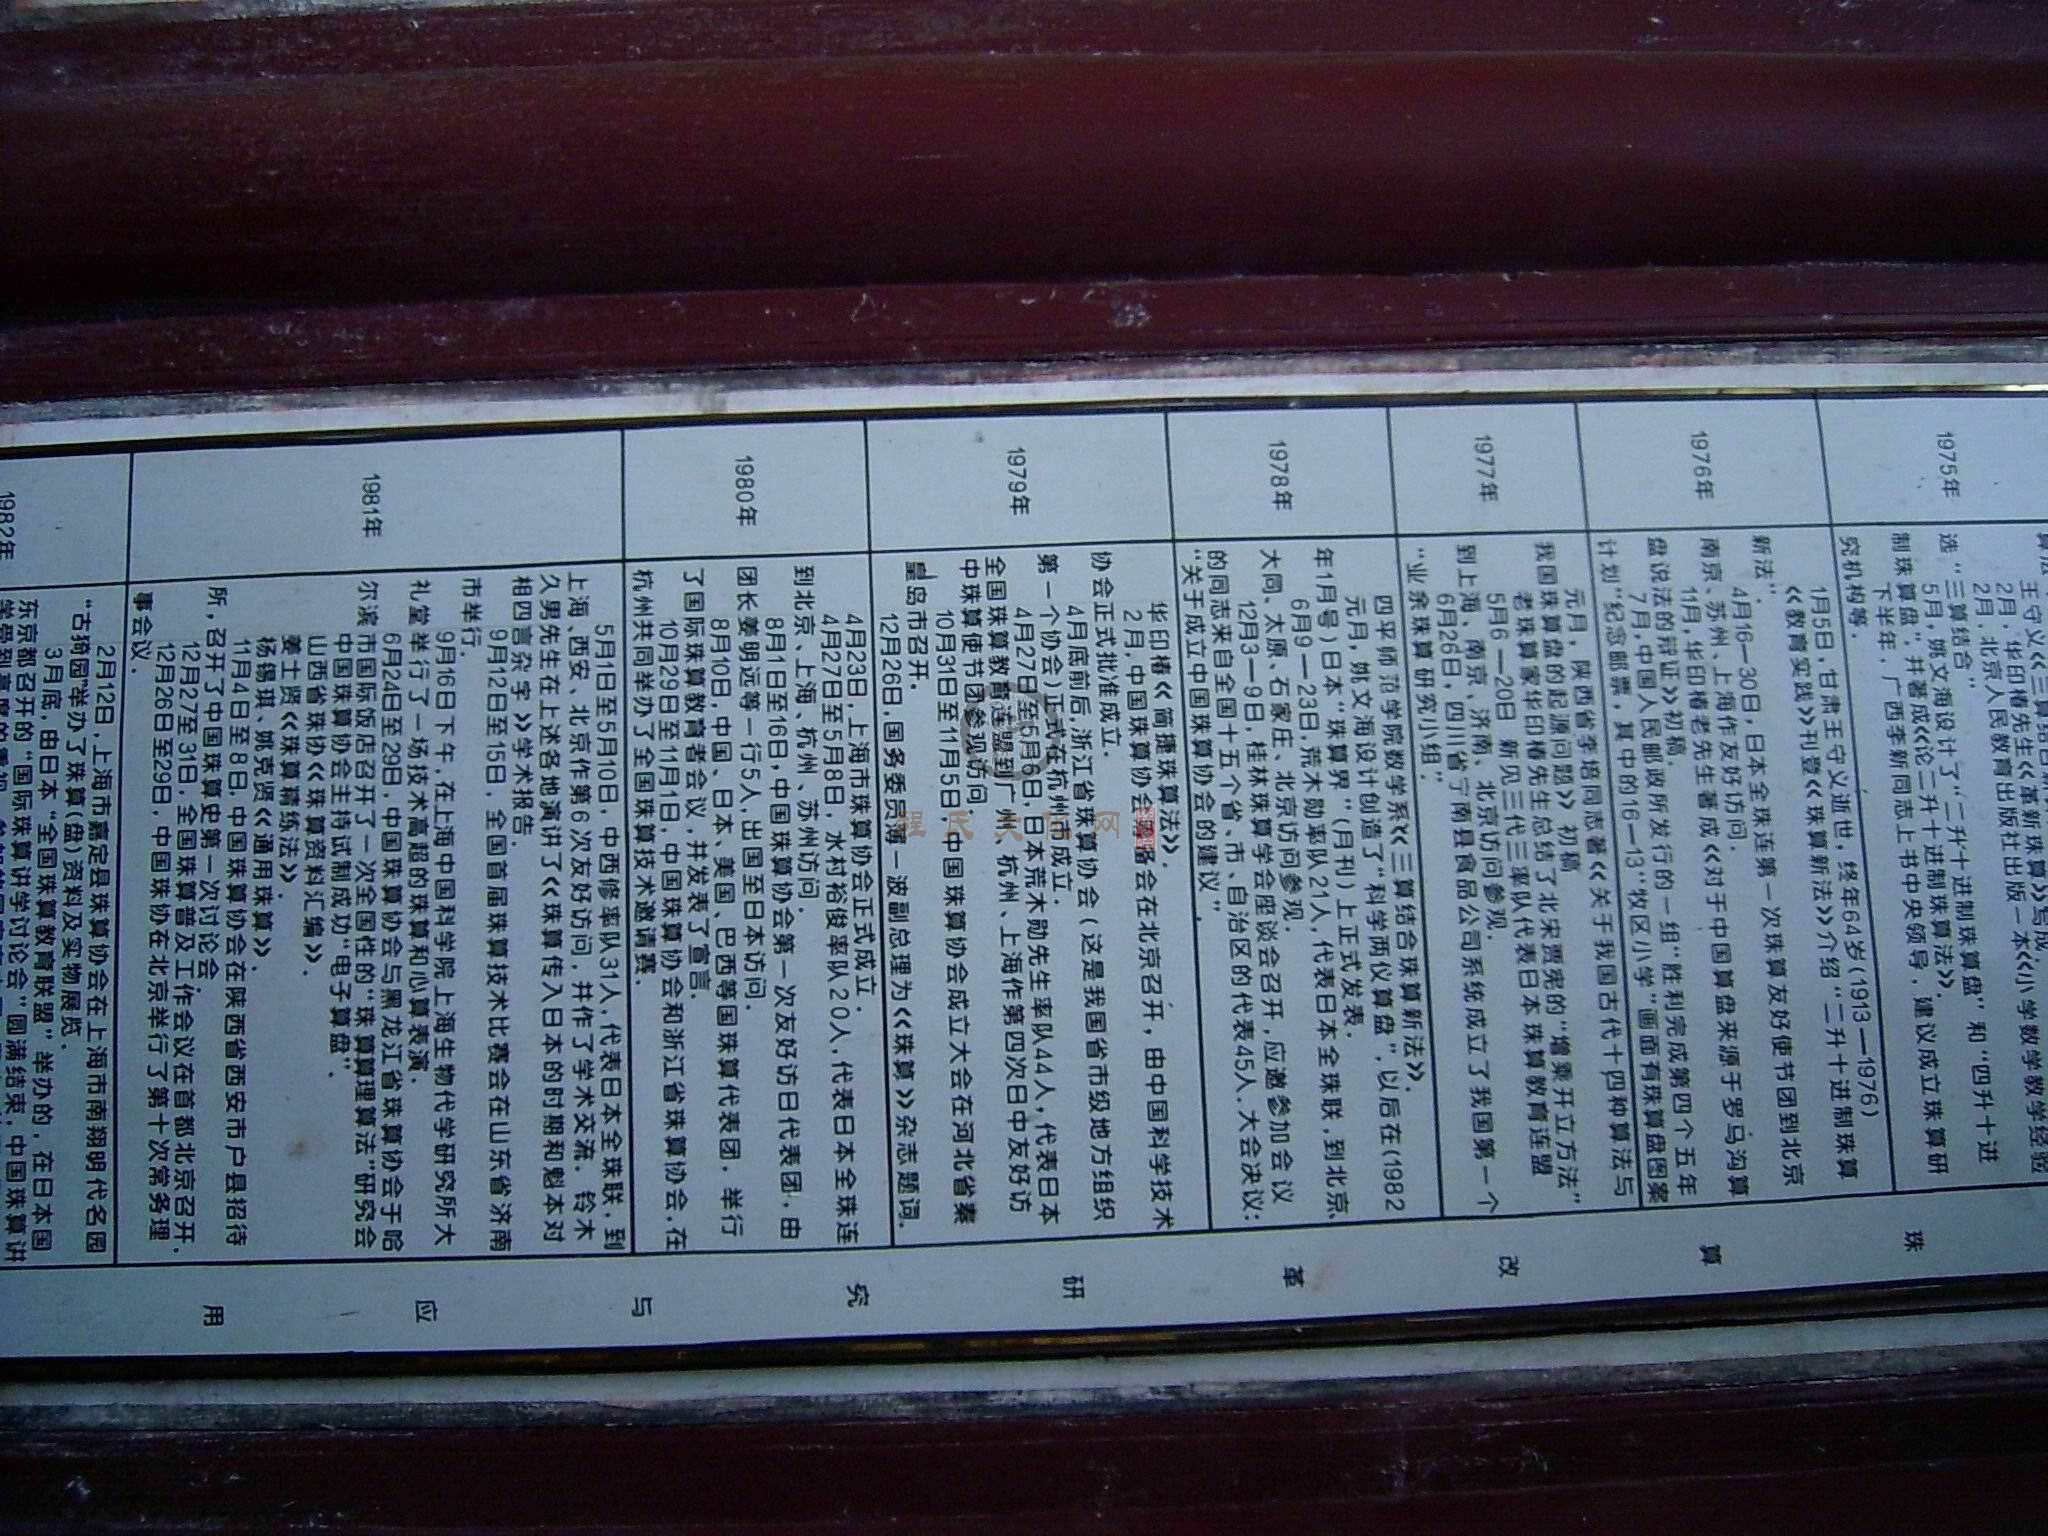 王守义《三算结合新
2月，华印椿先生《革新珠算》写成．
2月，北京人民教育出版社出版一本《小学数学教学经验
1975年
选“三算结合”．
5月，姚文海设计了“二升十进制珠算盘”和“四升十进
制珠算盘”，并著成《论二升十进制珠算法》．
下半年，广西李新同志上书中央领导，建议成立珠算研
究机构等．
1976年
1月5日，甘肃王守义逝世，终年64岁(1913—1976)
《教育实践》刊登《珠算新法》介绍“二升十进制珠算
新法”．
4月16—30日，日本全珠连第一次珠算友好使节团到北京
南京、苏州、上海作友好访问．
11月，华印椿老先生著成《对于中国算盘来源于罗马沟算
盘说法的辩证》初稿．
7月，中国人民邮政所发行的一组“胜利完成第四个五年
计划”纪念邮票，其中的16—13“牧区小学”画面有珠算盘图案
1977年
元月，陕西省李培同志著《关于我国古代十四种算法与
我国珠算盘的起源问题》初稿
老珠算家华印椿先生总结了北宋贾宪的“增乘开立方法”
5月6—20日 新见三代三率队代表日本珠算教育连盟
到上海、南京、济南、北京访问参观．
6月26日，四川省宁南县食品公司系统成立了我国第一个
“业余珠算研究小组”．
1978年
四平师范学院数学系《三算结合珠算新法》．
元月，姚文海设计创造了“科学两仪算盘”，以后在(1982
年1月号)日本“珠算界”(月刊)上正式发表．
6月9—23日，荒木勋率队21人，代表日本全珠联，到北京、
大同、太原、石家庄、北京访问参观．
12月3—9日，桂林珠算学会座谈会召开，应邀参加会议
的同志来自全国十五个省、市、自治区的代表45人，大会决议：
“关于成立中国珠算协会的建议”．
1979年
华印椿《简捷珠算法》．
2月，中国珠算协会筹备会在北京召开，由中国科学技术
协会正式批准成立．
4月底前后，浙江省珠算协会(这是我国省市级地方组织
第一个协会)正式在杭州市成立．
4月27日至5月6日，日本荒木勋先生率队44人，代表日本
全国珠算教育连盟到广州、杭州、上海作第四次日中友好访
中珠算使节团参观访问
10月31日至11月5日中国珠算协会成立大会在河北省秦
皇岛市召开．
12月26日，国务委员薄一波副总理为《珠算》杂志题词．
1980年
4月23日，上海市珠算协会正式成立．
4月27日至5月8日，水村裕俊率队20人，代表日本全珠连
到北京、上海、杭州、苏州访问．
8月1日至16日，中国珠算协会第一次友好访日代表团，由
团长姜明远等一行5人，出国至日本访问．
8月10日，中国、日本、美国、巴西等国珠算代表团，举行
了国际珠算教育者会议，并发表了宣言．
10月29日至11月1日，中国珠算协会和浙江省珠算协会，在
杭州共同举办了全国珠算技术邀请赛．
1981年
5月1日至5月10日，中西修率队31人，代表日本全珠联，到
上海、西安、北京作第6次友好访问，并作了学术交流．铃木
久男先生在上述各地演讲了《珠算传入日本的时期和魁本对
相四言杂字》学术报告．
9月12日至15日，全国首届珠算技术比赛会在山东省济南
市举行．
9月16日下午，在上海中国科学院上海生物代学研究所大
礼堂举行了一场技术高超的珠算和心算表演．
6月24日至29日，中国珠算协会与黑龙江省珠算协会于哈
尔滨市国际饭店召开了一次全国性的“珠算算理算法”研究会
中国珠算协会主持试制成功“电子算盘”．
山西省珠协《珠算资料汇编》．
姜士贤《珠算精练法》．
杨锡琪、姚克贤《通用珠算》．
11月4日至8日，中国珠算协会在陕西省西安市户县招待
所，召开了中国珠算史第一次讨论会．
12月27至31日，全国珠算普及工作会议在首都北京召开．
12月26日至29日，中国珠协在北京举行了第十次常务理
事会议．
1982年
2月12日，上海市嘉定县珠算协会在上海市南翔明代名园
“古猗园”举办了珠算(盘)资料及实物展览．
3月底，由日本“全国珠算教育联盟”举办的，在日本国
东京都召开的“国际珠算讲学讨论会”圆满结束，中国珠算讲
珠算改革研究与应用
程氏文化网